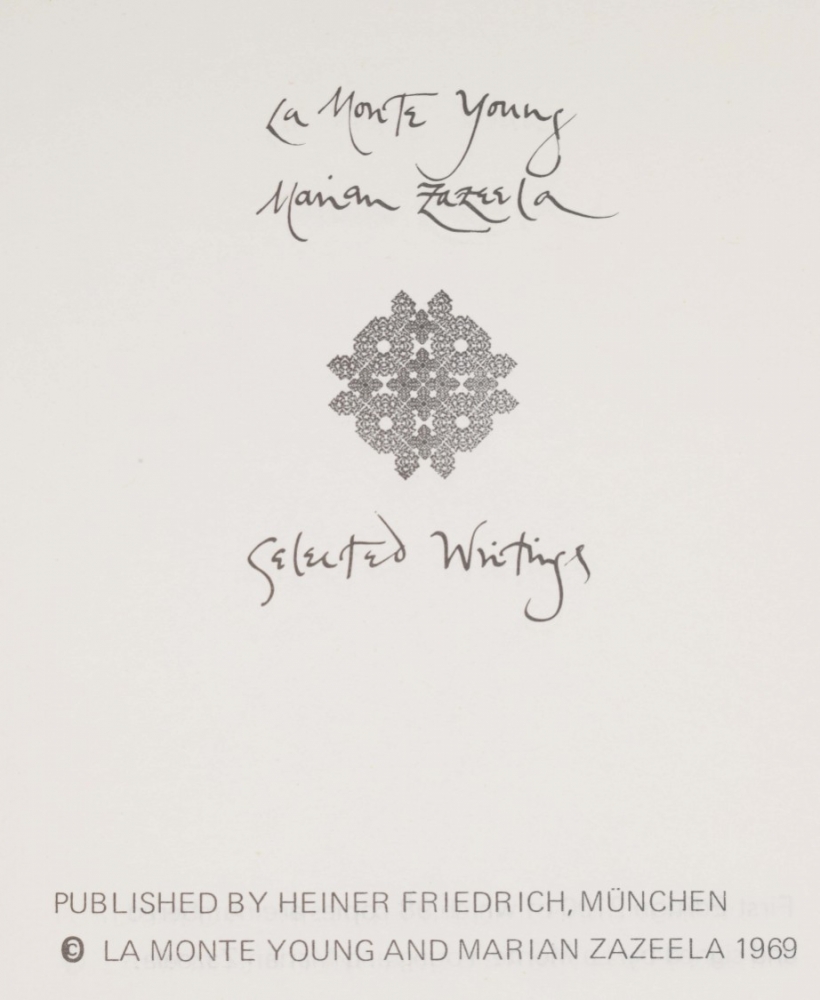 La Monte Young
Marian Zazeela
Selected Writings
PUBLISHED BY HEINER FRIEDRICH, MÜNCHEN
© LA MONTE YOUNG AND MARIAN ZAZEELA 1969